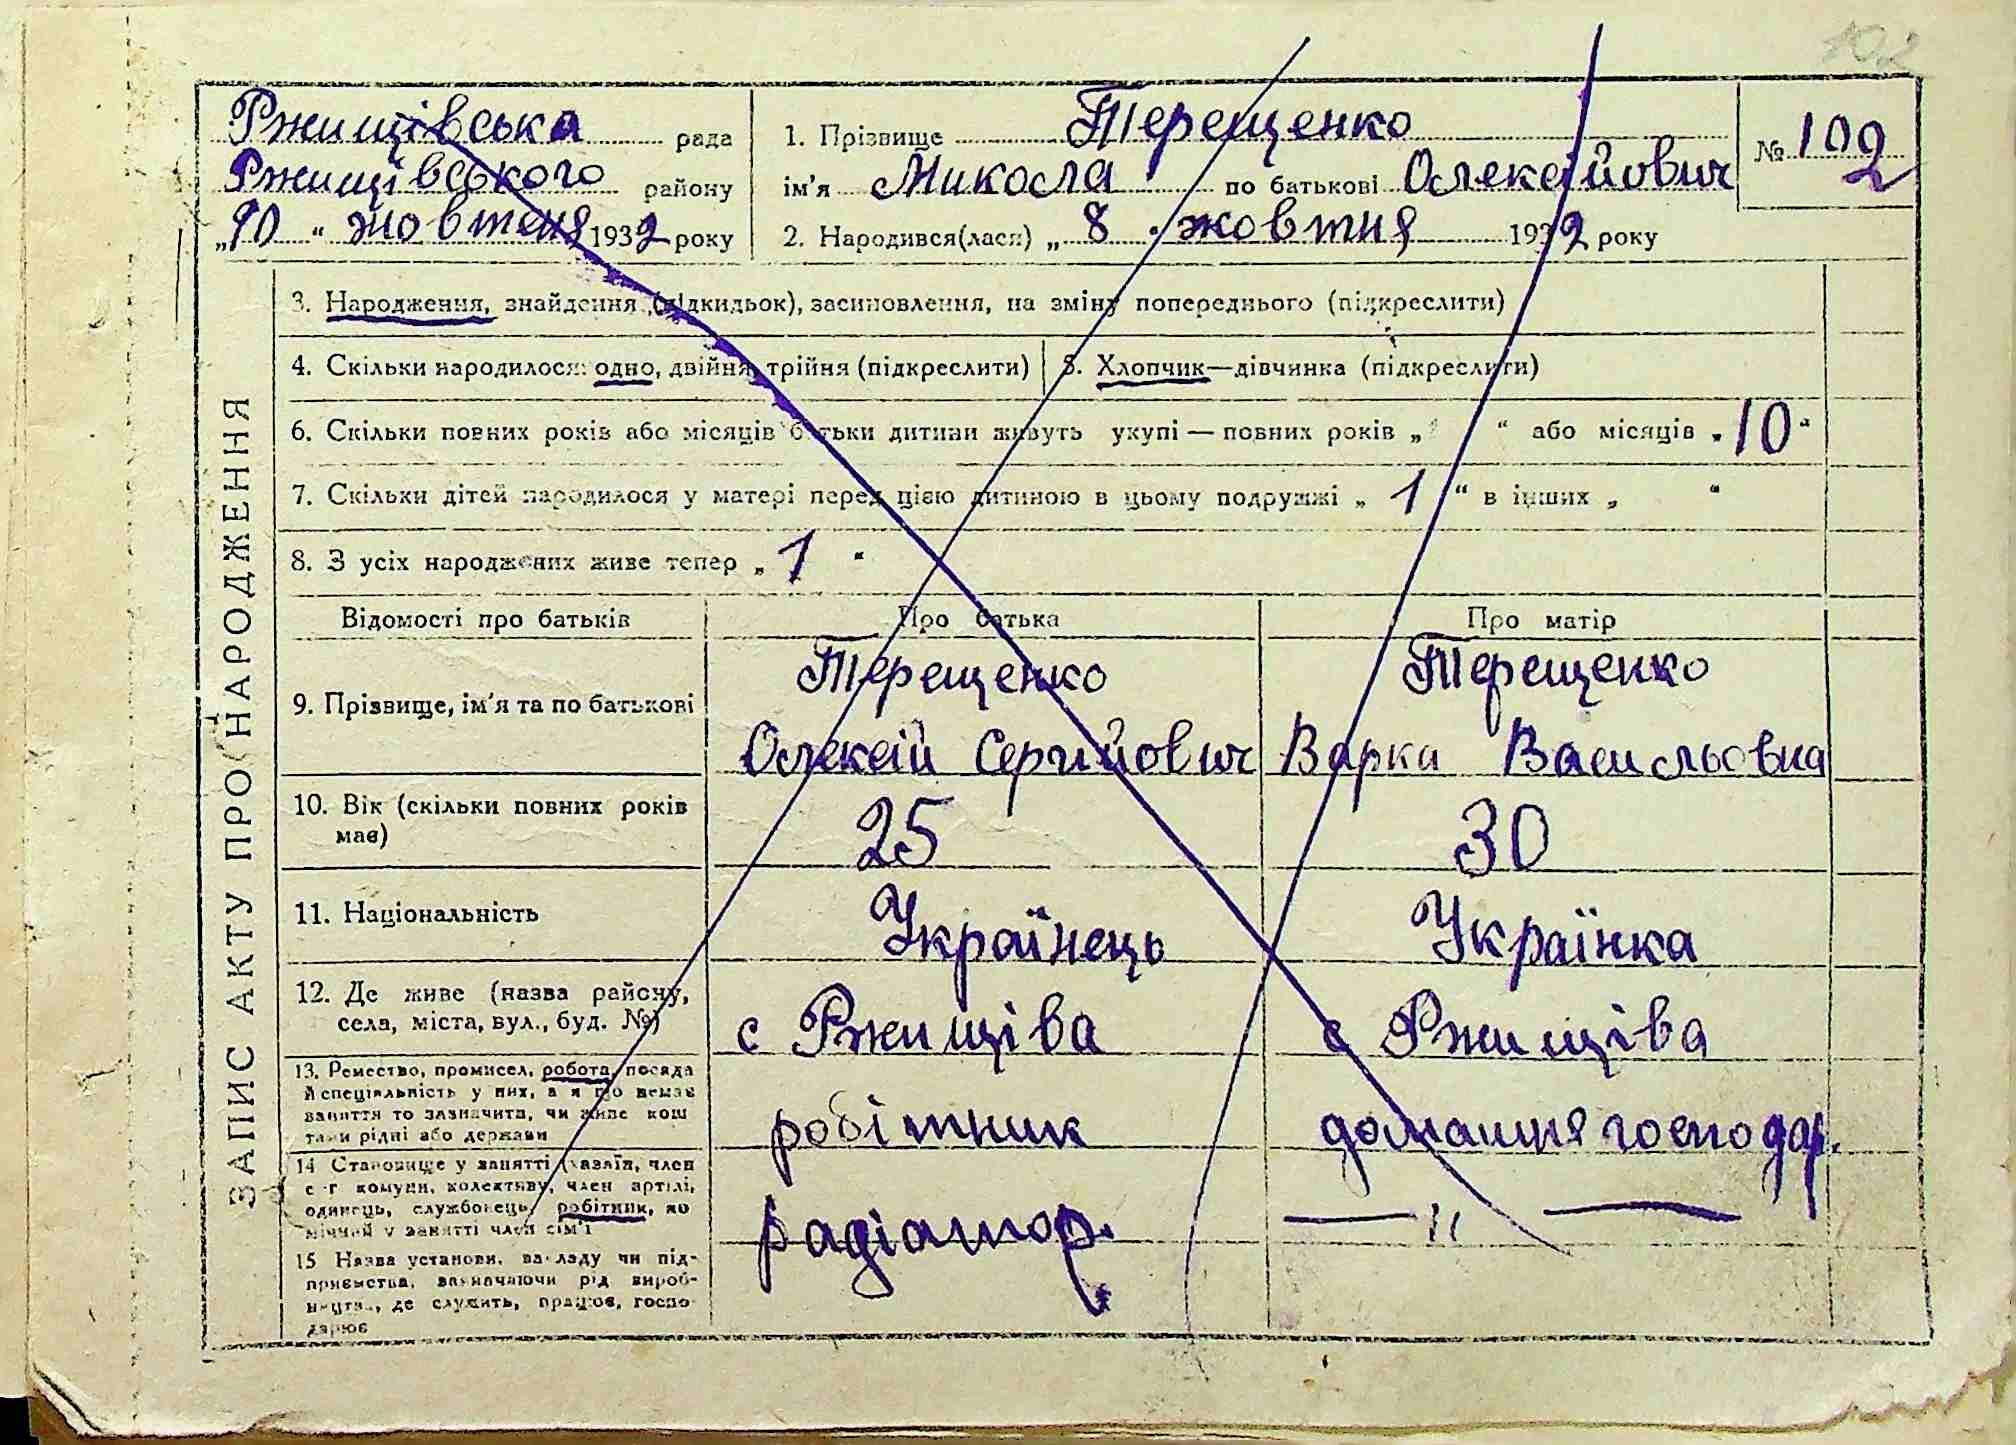 102
Ржищівська рада
Ржищівського району
„10“ жовтня 1932 року
1. Прізвище Терещенко
ім'я Микола по батькові Олексійович
2. Народився(лася) „8“ жовтня 1932 року
№ 102
ЗАПИС АКТУ ПРО НАРОДЖЕННЯ
3. Народження, знайдення (підкидьок), засиновлення, на зміну попереднього (підкреслити)
4. Скільки народилося: одно, двійня, трійня (підкреслити)
5. Хлопчик—дівчинка (підкреслити)
6. Скільки повних років або місяців батьки дитини живуть укупі — повних років „ “ або місяців „10“
7. Скільки дітей народилося у матері перед цією дитиною в цьому подружжі „1“ в інших „ “
8. З усіх народжених живе тепер „1“
Відомості про батьків Про батька Про матір
9. Прізвище, ім'я та по батькові
Терещенко Олексій Сергійович
Терещенко Варка Васильовна
10. Вік (скільки повних років
має)
25 30
11. Національність Українець Українка
12. Де живе (назва району,
села, міста, вул., буд. №)
с Ржищіва с Ржищіва
13. Ремество, промисел, робота, посада
й спеціяльність у них, а я що немає
заняття то зазначити, чи живе кош
тами рідні або держави
робітник домашня господар.
14 Становище у занятті (хазяїн, член
с-г комуни, колективу, член артілі,
одинець, службовець, робітник, по
мічний у занятті член сім'ї
радіатор. — „ —
15 Назва установи, закладу чи під-
приємства, зазначаючи рід вироб-
ництва, де служить, працює, госпо-
дарює